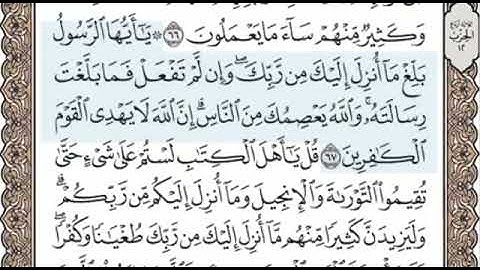 وَكَثِيرٌ مِّنْهُمْ سَآءَ مَا يَعْمَلُونَ ٦٦ ۞ يَـٰٓأَيُّهَا ٱلرَّسُولُ
بَلِّغْ مَآ أُنزِلَ إِلَيْكَ مِن رَّبِّكَ ۖ وَإِن لَّمْ تَفْعَلْ فَمَا بَلَّغْتَ
رِسَالَتَهُۥ ۚ وَٱللَّهُ يَعْصِمُكَ مِنَ ٱلنَّاسِ ۗ إِنَّ ٱللَّهَ لَا يَهْدِى ٱلْقَوْمَ
ٱلْكَـٰفِرِينَ ٦٧ قُلْ يَـٰٓأَهْلَ ٱلْكِتَـٰبِ لَسْتُمْ عَلَىٰ شَىْءٍ حَتَّىٰ
تُقِيمُوا۟ ٱلتَّوْرَىٰةَ وَٱلْإِنجِيلَ وَمَآ أُنزِلَ إِلَيْكُم مِّن رَّبِّكُمْ ۗ
وَلَيَزِيدَنَّ كَثِيرًا مِّنْهُم مَّآ أُنزِلَ إِلَيْكَ مِن رَّبِّكَ طُغْيَـٰنًا وَكُفْرًا ۖ